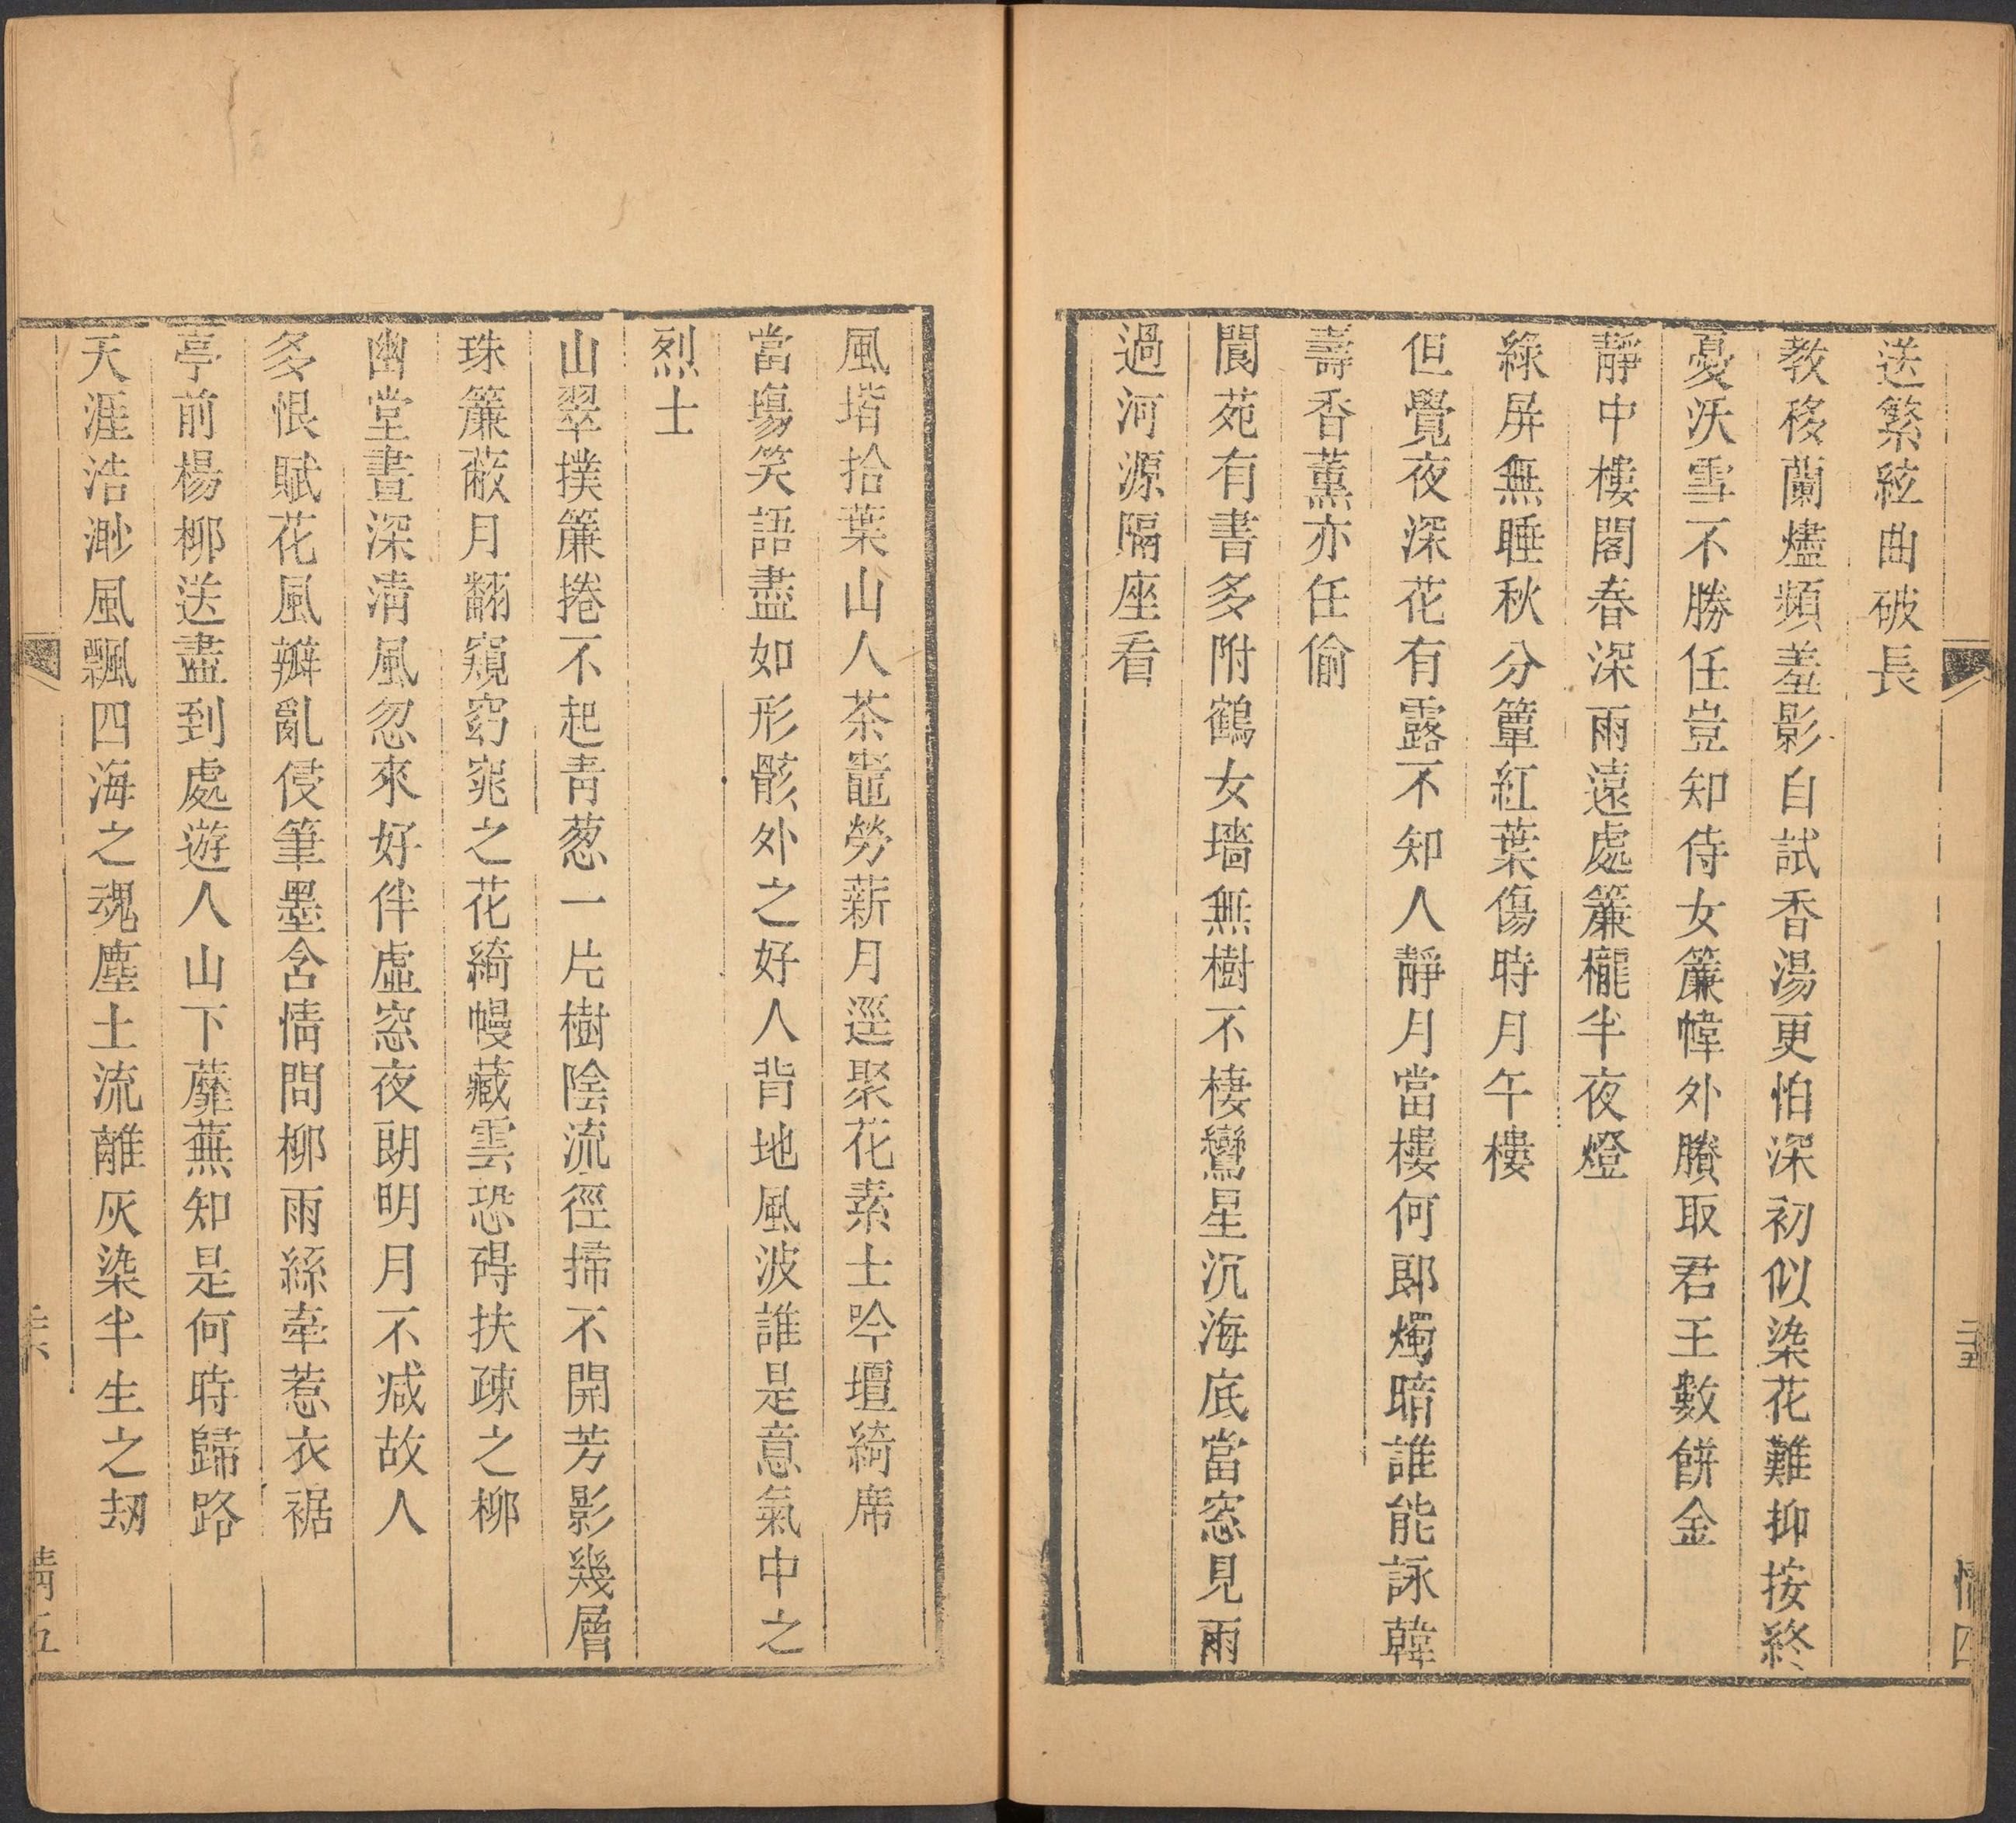 送繁絃曲破長
教移蘭燼頻羞影自試香湯更怕深初似染花難抑按終
憂沃雪不勝任豈知侍女簾幃外賸取君王數餅金
靜中樓閣春深雨遠處簾櫳半夜燈
綠屏無睡秋分簟紅葉傷時月午樓
但覺夜深花有露不知人靜月當樓何郎燭暗誰能詠韓
壽香薰亦任偷
閬苑有書多附鶴女墻無樹不棲鸞星沉海底當窓見雨
過河源隔座看
風堦拾葉山人茶竈勞薪月逕聚花素士吟壇綺席
當塲笑語盡如形骸外之好人背地風波誰是意氣中之
烈士
山翠撲簾捲不起青葱一片樹陰流徑掃不開芳影幾層
珠簾蔽月翻窺窈窕之花綺幔藏雲恐碍扶疎之柳
幽堂晝深清風忽來好伴虛窓夜朗明月不减故人
多恨賦花風瓣亂侵筆墨含情問柳雨絲牽惹衣裾
亭前楊柳送盡到處遊人山下蘼蕪知是何時歸路
天涯浩渺風飄四海之魂塵土流離灰染半生之刼